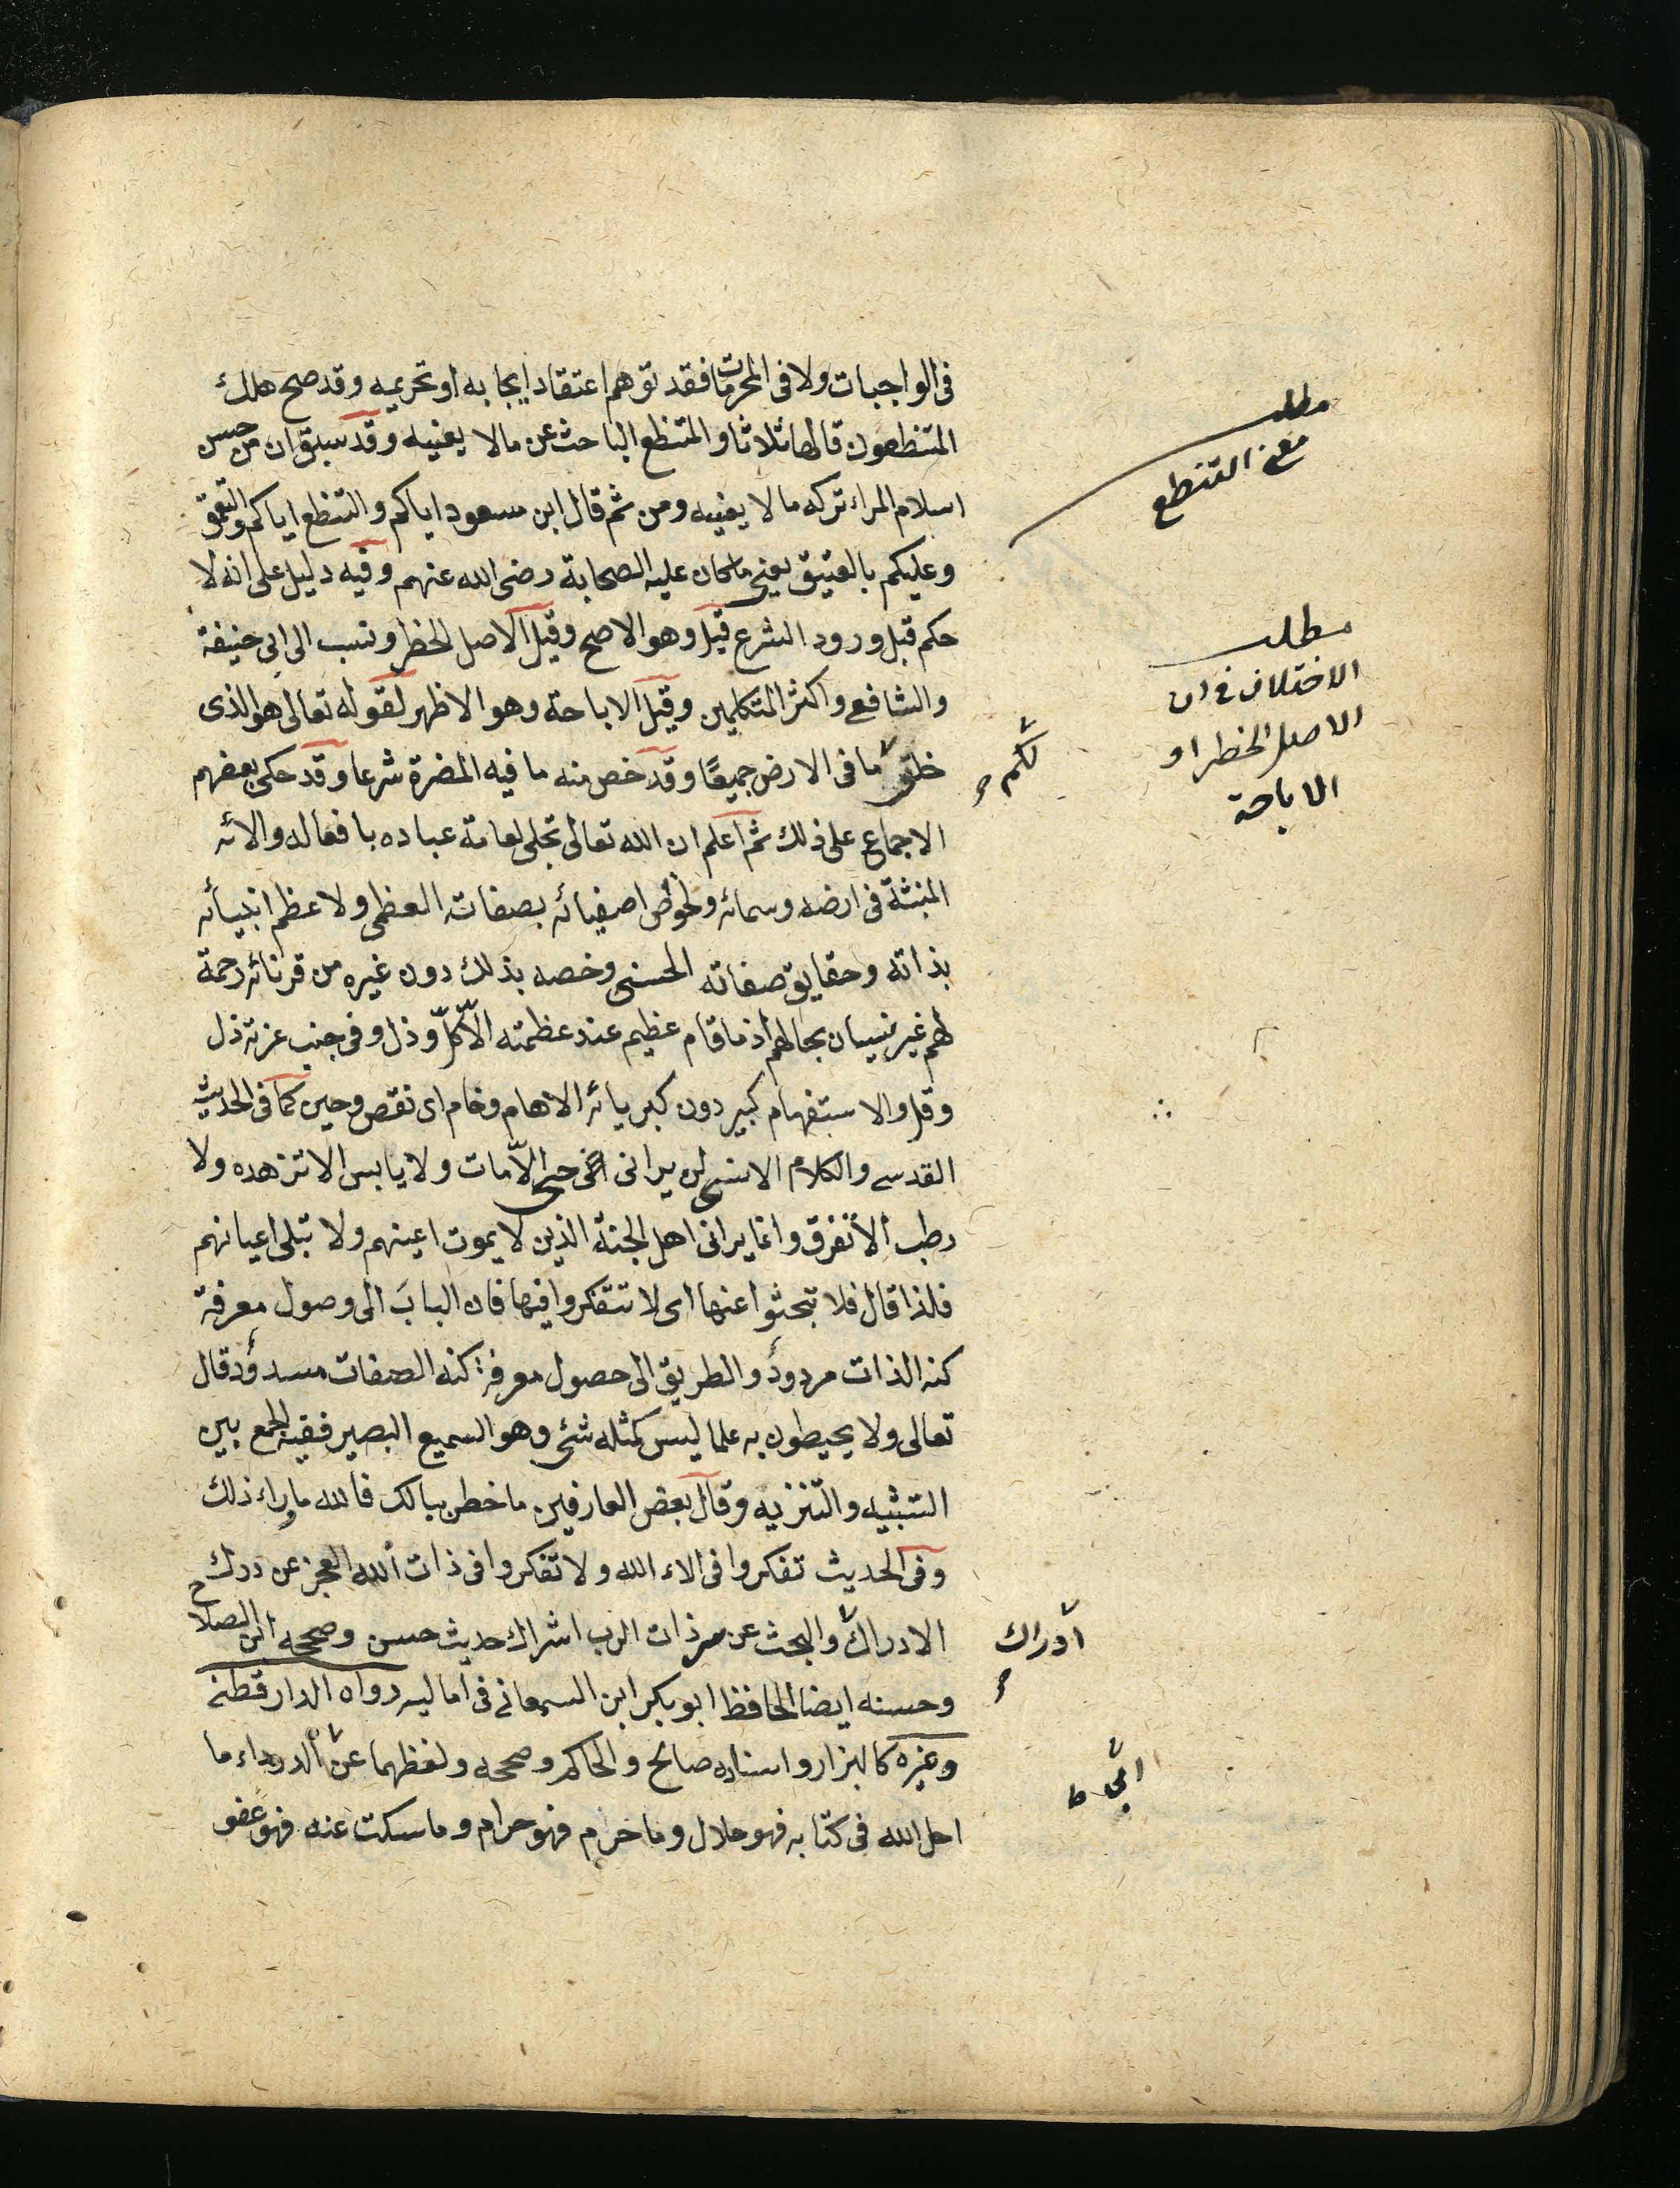 فى الواجبات ولا فى المحرمات فقد توهم اعتقاد ايجابه او تحريمه وقد صح هلك
المتنطعون قالها ثلاثا والمتنطع الباحث عن مالا يعنيه وقد سبق ان من حسن
اسلام المراء تركه مالا يعنيه ومن ثم قال ابن مسعود اياكم والتنطع اياكم والتعمق
وعليكم بالعتيق يعنى ما كان عليه الصحابة رضى الله عنهم وفيه دليل على انه لا
حكم قبل ورود الشرع قيل وهو الاصح وقيل الاصل الحظر ونسب الى ابى حنيفة
والشافعى واكثر المتكلمين وقيل الاباحة وهو الاظهر لقوله تعالى هو الذى
خلق ما فى الارض جميعًا وقد خص منه ما فيه المضرة شرعا وقد حكى بعضهم
الاجماع على ذلك ثم اعلم ان الله تعالى تجلى لعامة عباده بافعاله والائه
المنبثة فى ارضه وسمائه ولخواص اصفيائه بصفاته العظمى ولاعظم انبيائه
بذاته وحقايق صفاته الحسنى وخصه بذلك دون غيره من قرنائه رحمة
لهم غير نسيان بحالهم اذ ما قام عظيم عند عظمته الّا كلّ وذل وفى جنب عزته ذل
وقل والاستفهام كبير دون كبريائه الا هام وخام اى نقص وحين كما فى الحديث
القدسى والكلام الانسى لن يرانى حى الّا مات ولا يابس الا تزهده ولا
رطب الا تفرق وانما يرانى اهل الجنة الذين لا يموت اعينهم ولا تبلى اعيانهم
فلذا قال فلا تبحثوا عنها اى لا تتفكروا فيها فان البابَ الى وصول معرفة
كنه الذات مردودٌ والطريق الى حصول معرفة كنه الصفات مسدودٌ قال
تعالى ولا يحيطون به علما ليس كمثله شئ وهو السميع البصير ففيه الجمع بين
التشبيه والتنزيه وقال بعض العارفين ما خطر ببالك فالله ماوراء ذلك
وفى الحديث تفكروا فى الاء الله ولا تفكروا فى ذات الله العجز عن درك
الادراك والبحث عن سر ذات الرب اشراك حديث حسن وصححه ابن الصلاح
وحسنه ايضا الحافظ ابو بكر ابن السمعانى فى اماليه رواه الدارقطنى
وغيره كالبزار واسناده صالح والحاكم وصححه ولفظهما عن الدرداء ما
احل الله فى كتابه فهو حلال وما حرام فهو حرام وما سكت عنه فهو عفو
مطلب
معنى التنطع
مطلب
الاختلاف فى ان
الاصل الحظر او
الاباحة
لكم
ادراك
ابى